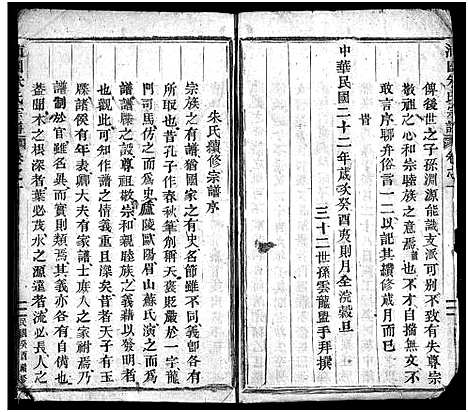 俾後世之子孫淵源能識支派可聯以致有失尊宗
敬祖之心和宗睦族之意焉也不才自揣無文不
敢言序聊弁俗言一二以記其讚修歲月而已
貴
中華民國二十二年歲次癸酉夷則月全浣穀旦
三十二世孫雲龍盥手拜撰
朱氏續修宗譜序
宗族之有譜猶國家之有史名節雖不同義卽各有
攸當也昔孔子作春秋筆創稱天褒貶嚴於一字龍
門司馬仿之而為史盧陵歐陽眉山蘇氏演之而為
譜譜牒之設尊祖敬宗和親睦族之義藉以發明者
也觀此可知作譜之情義重且深矣昔者天子有玉
牒諸侯有年表卿大夫有家譜士庶人之家祔焉乃
譜制於官雖名異而實則類焉其義亦各有至焉
蓋聞木之根深者葉必茂水之源遠者流必長人之